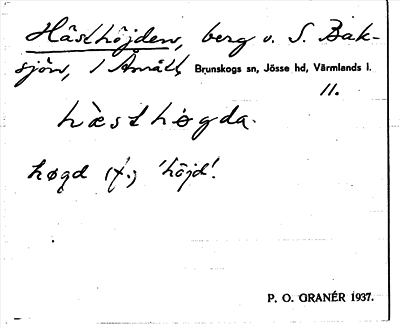 Hästhöjden, berg v. S. Bak-
sjön, 1 Åmått, Brunskogs sn, Jösse hd, Värmlands l.
11.
hæ̀sthøgda.
høgd (f.) 'höjd'.
P. O. GRANÉR 1937.